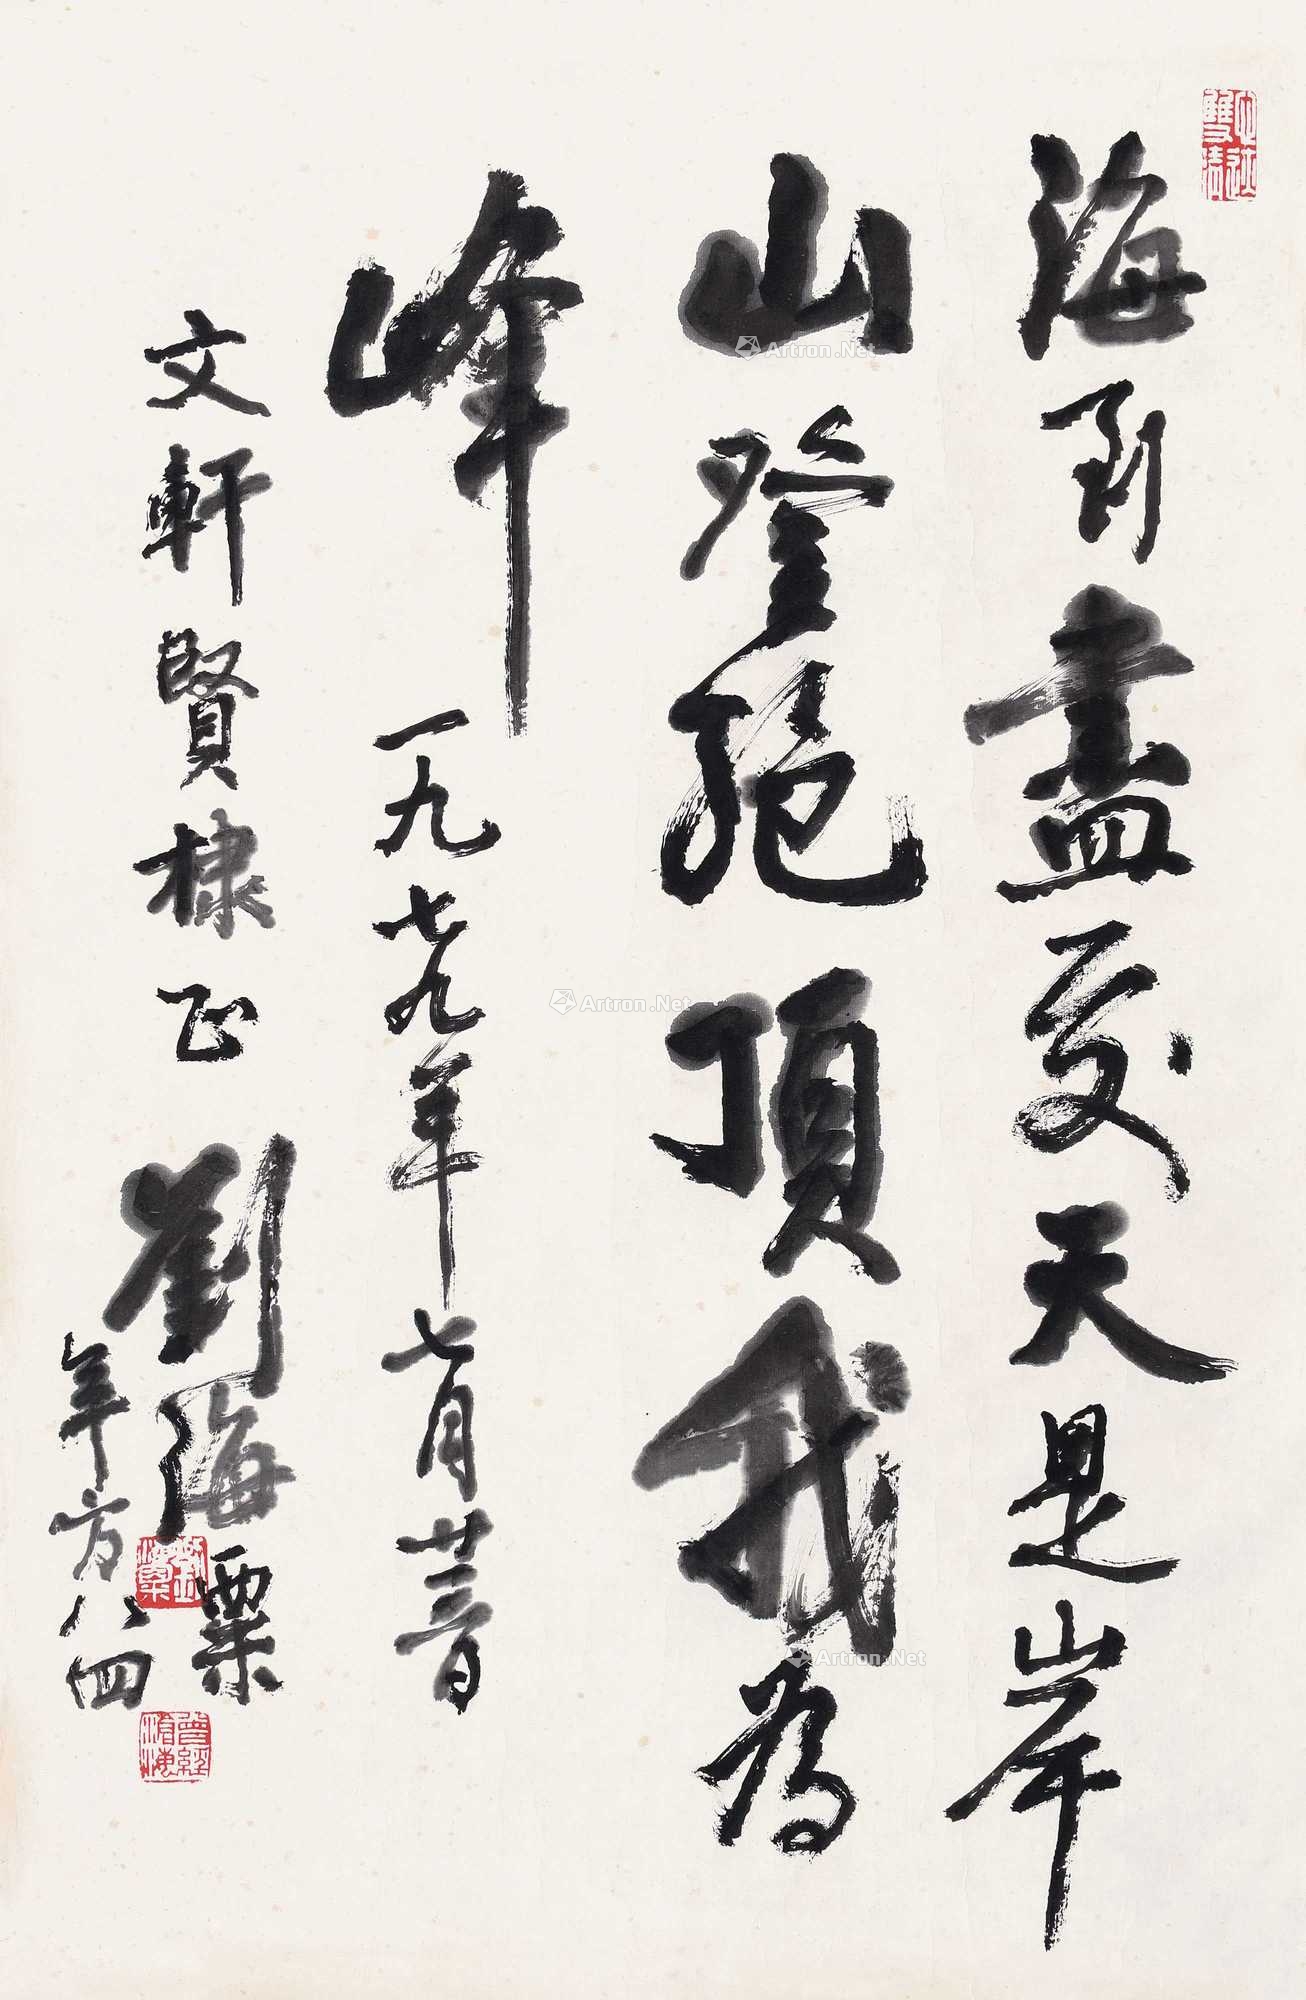 心迹雙清
海到盡處天是岸
山登絕頂我為
峰 一九七九年七月廿三日
文軒賢棣正 劉海粟
年方八四
劉海粟
曾經滄海
Artron.Net
Artron.Net
Artron.Net